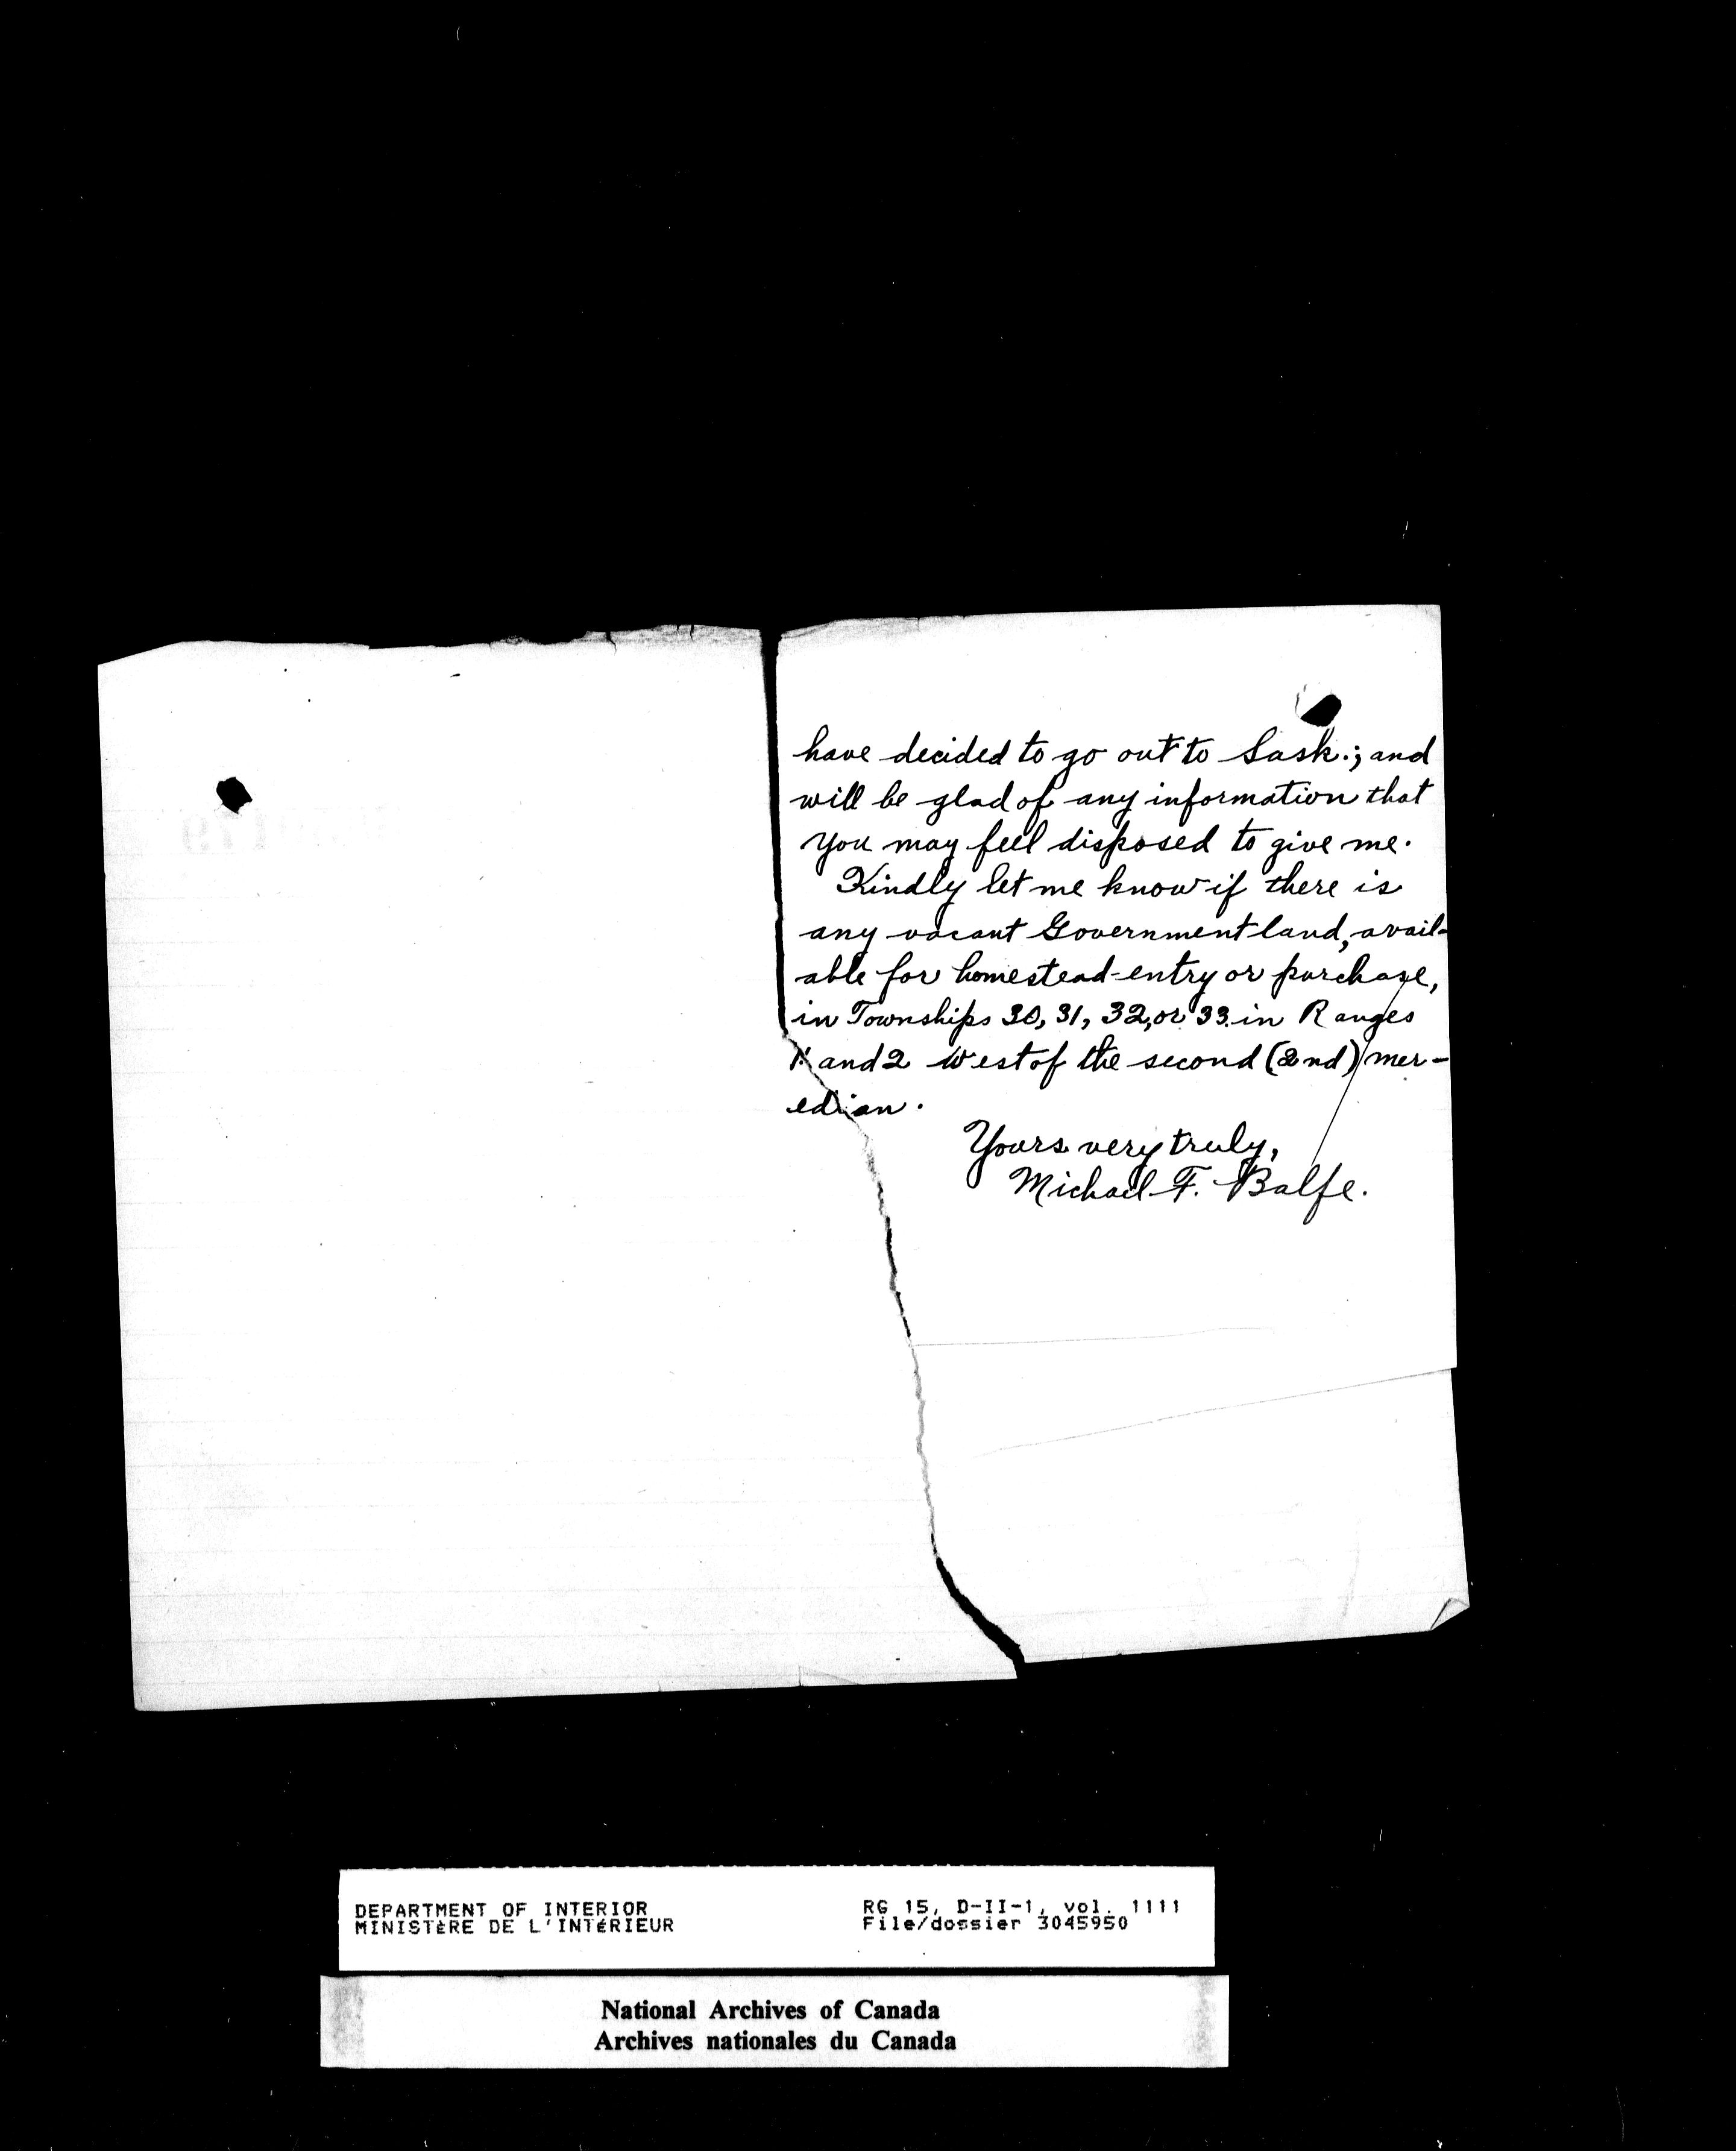 have decided to go out to Sask.; and
will be glad of any information that
you may feel disposed to give me.
Kindly let me know if there is
any vacant Government land, avail-
able for homestead-entry or purchase,
in Townships 30, 31, 32, or 33 in Ranges
1 and 2 West of the second (2nd) mer-
edian.
Yours very truly,
Michael F. Balfe.
DEPARTMENT OF INTERIOR
MINISTÈRE DE L'INTÉRIEUR
RG 15, D-II-1, vol. 1111
File/dossier 3045950
National Archives of Canada
Archives nationales du Canada